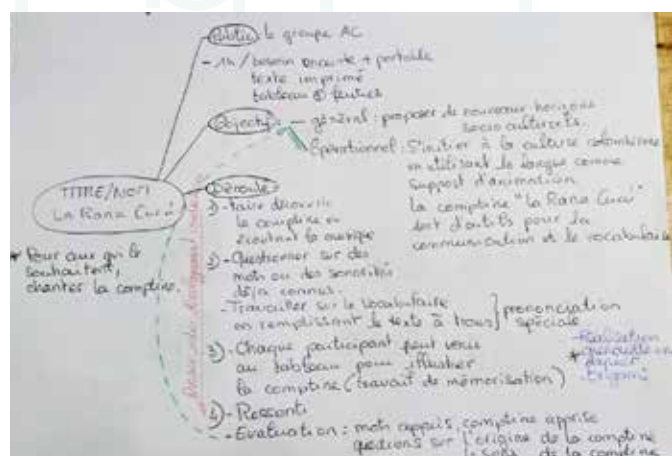 Public: le groupe AC
- 1h / besoin enceinte + portable
texte imprimé
tableau ⊕ feutres
Objectifs — général : proposer de nouveaux horizons
socio culturels.
Opérationnel : S'initier à la culture colombienne
en utilisant la langue comme
support d'animation
la comptine "La Rana Cucú"
sert d'outils pour la
communication et le vocabulaire
TITRE/NOM
La Rana Cucú
* Pour ceux qui le
souhaitent,
chanter la comptine.
Déroulé
1)- faire découvrir
la comptine en
écoutant la musique
2)- Questionner sur des
mots ou des sonorités
déjà connus.
- Travailler sur le vocabulaire
en remplissant le texte à trous } prononciation
spéciale
3)- Chaque participant peut venir
au tableau pour illustrer
la comptine (travail de mémorisation)
- Réalisation
* grenouille en
papier
- origami
4)- Ressenti
- Evaluation : mots appris, comptine apprise
questions sur l'origine de la comptine
de la comptine